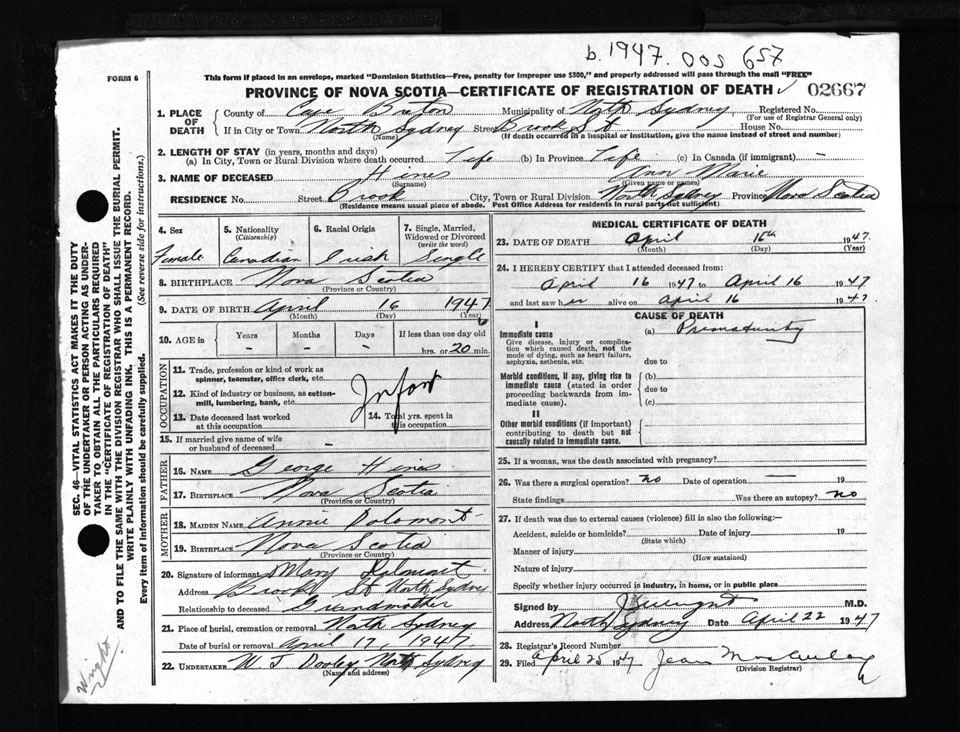 b. 1947. 005 657
FORM 6
This form if placed in an envelope, marked "Dominion Statistics—Free, penalty for improper use $300," and properly addressed will pass through the mail "FREE"
PROVINCE OF NOVA SCOTIA—CERTIFICATE OF REGISTRATION OF DEATH ✓ 02667
1. PLACE OF DEATH
County of Cape Breton Municipality of North Sydney Registered No.
(For use of Registrar General only)
If in City or Town North Sydney Street Brook St House No.
(Name) (If death occurred in a hospital or institution, give the name instead of street and number)
2. LENGTH OF STAY (in years, months and days)
(a) In City, Town or Rural Division where death occurred Life (b) In Province Life (c) In Canada (if immigrant) —
3. NAME OF DECEASED Hines Ann Marie
(Surname) (Given name or names)
RESIDENCE No. Street Brook City, Town or Rural Division North Sydney Province Nova Scotia
(Residence means usual place of abode. Post Office Address for residents in rural parts not sufficient)
4. Sex Female
5. Nationality (Citizenship) Canadian
6. Racial Origin Irish
7. Single, Married, Widowed or Divorced (write the word) Single
8. BIRTHPLACE Nova Scotia
(Province or Country)
9. DATE OF BIRTH April 16 1947
(Month) (Day) (Year)
10. AGE in Years — Months — Days — If less than one day old hrs. or 20 min.
OCCUPATION
11. Trade, profession or kind of work as spinner, teamster, office clerk, etc.
12. Kind of industry or business, as cotton-mill, lumbering, bank, etc.
Infant
13. Date deceased last worked at this occupation
14. Total yrs. spent in this occupation
15. If married give name of wife or husband of deceased —
FATHER
16. NAME George Hines
17. BIRTHPLACE Nova Scotia
(Province or Country)
MOTHER
18. MAIDEN NAME Annie Dolomont
19. BIRTHPLACE Nova Scotia
(Province or Country)
20. Signature of informant Mary Dolmont
Address Brook St North Sydney
Relationship to deceased Grandmother
21. Place of burial, cremation or removal North Sydney
Date of burial or removal April 17, 1947
22. UNDERTAKER W J Dooley North Sydney
(Name and address)
MEDICAL CERTIFICATE OF DEATH
23. DATE OF DEATH April 16th 1947
(Month) (Day) (Year)
24. I HEREBY CERTIFY that I attended deceased from:
April 16 1947 to April 16 1947
and last saw her alive on April 16 1947
CAUSE OF DEATH
I
Immediate cause (a) Prematurity
Give disease, injury or complication which caused death, not the mode of dying, such as heart failure, asphyxia, asthenia, etc.
due to
Morbid conditions, if any, giving rise to immediate cause (stated in order proceeding backwards from immediate cause).
(b)
due to
(c)
II
Other morbid conditions (if important) contributing to death but not causally related to immediate cause.
25. If a woman, was the death associated with pregnancy?
26. Was there a surgical operation? no Date of operation 19
State findings Was there an autopsy? no
27. If death was due to external causes (violence) fill in also the following:—
Accident, suicide or homicide? Date of injury 19
(State which)
Manner of injury
(How sustained)
Nature of injury
Specify whether injury occurred in industry, in home, or in public place
Signed by M.D.
Address North Sydney Date April 22 1947
28. Registrar's Record Number
29. Filed April 25 1947 Jean
(Division Registrar)
SEC. 46—VITAL STATISTICS ACT MAKES IT THE DUTY
OF THE UNDERTAKER OR PERSON ACTING AS UNDER-
TAKER TO OBTAIN ALL THE PARTICULARS REQUIRED
IN THE "CERTIFICATE OF REGISTRATION OF DEATH"
AND TO FILE THE SAME WITH THE DIVISION REGISTRAR WHO SHALL ISSUE THE BURIAL PERMIT.
WRITE PLAINLY WITH UNFADING INK. THIS IS A PERMANENT RECORD.
Every item of Information should be carefully supplied. (See reverse side for instructions.)
Wright